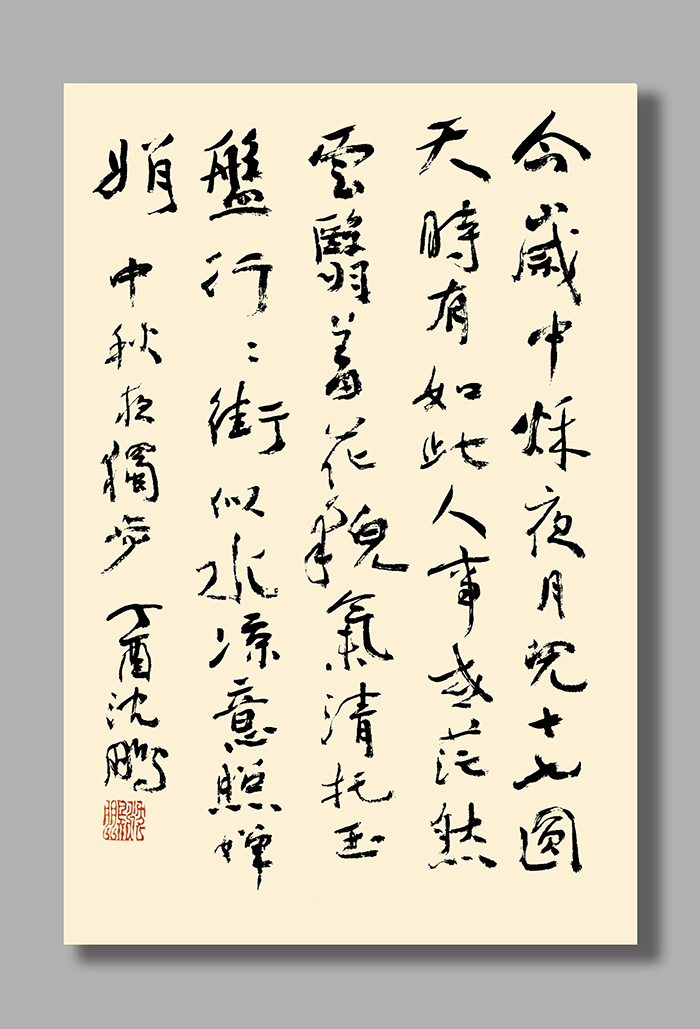 今歲中秌夜月兒十七圓
天時有如此人事或茫然
雲翳羞花貌氣清托玉
盤行〻街似水凉意照嬋
娟
中秋夜獨步 丁酉沈鵬